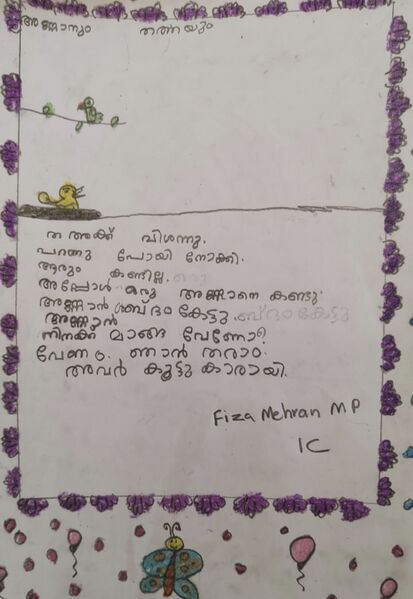 അണ്ണാനും തത്തയും
തത്തക്ക് വിശന്നു.
പറന്നു പോയി നോക്കി.
ആരും കണ്ടില്ല. ഒരു
അപ്പോൾ ഒരു അണ്ണാനെ കണ്ടു
അണ്ണാൻ ശബ്ദം കേട്ടു. ബ്ദം കേട്ടു
അണ്ണാൻ
നിനക്ക് മാങ്ങ വേണോ?
വേണം. ഞാൻ തരാം.
അവർ കൂട്ടുകാരായി.
Fiza Mehran M P
1C